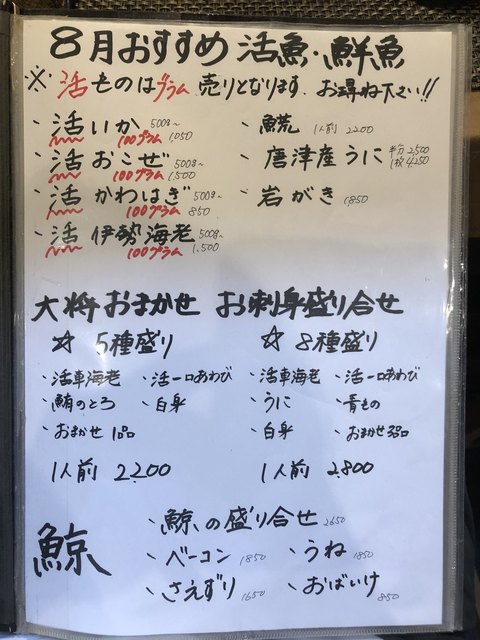 8月おすすめ 活魚・鮮魚
※活ものはグラム売りとなります。お尋ね下さい!!
・活いか 500g〜
100グラム 1,050
・活おこぜ 500g〜
100グラム 1,500
・活かわはぎ 500g〜
100グラム 850
・活伊勢海老 500g〜
100グラム 1,500
・魚荒 1人前 2,200
・唐津産うに 半分 2,500
1枚 4,250
・岩がき 1,850
大将おまかせ お刺身盛り合せ
☆ 5種盛り
・活車海老 ・活一口あわび
・鮪のとろ ・白身
・おまかせ1品
1人前 2,200
☆ 8種盛り
・活車海老 ・活一口あわび
・うに ・青もの
・白身 ・おまかせ3品
1人前 2,800
鯨
・鯨の盛り合せ 2650
・ベーコン 1850 ・うね 1850
・さえずり 1650 ・おばいけ 850